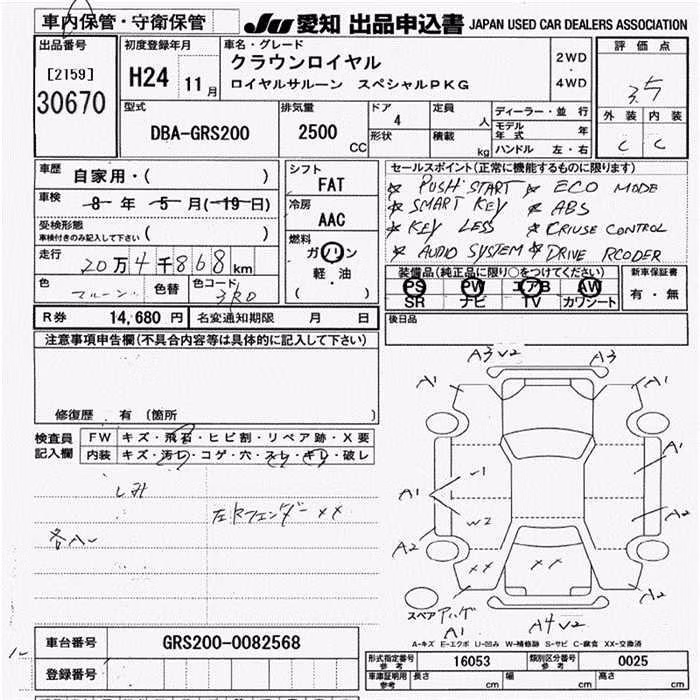 車内保管・守衛保管
JU 愛知 出品申込書 JAPAN USED CAR DEALERS ASSOCIATION
出品番号
[2159]
30670
初度登録年月
H24 11 月
車名・グレード
クラウンロイヤル
ロイヤルサルーン スペシャルPKG
2WD
・
4WD
評価点
3.5
外装 内装
C C
型式
DBA-GRS200
排気量
2500
CC
ドア
4
形状
定員
人
積載
kg
ディーラー・並行
モデル年式 年
ハンドル 左・右
車歴
自家用・( )
車検
8 年 5 月(19日)
受検形態
車検付きのみ記入して下さい ( )
走行
20万4千868km
色
マルーン
色替
色コード
3R0
シフト
FAT
冷房
AAC
燃料
ガソリン
軽・油
( )
セールスポイント(正常に機能するものに限ります)
☆ PUSH START ☆ ECO MODE
☆ SMART KEY ☆ ABS
☆ KEY LESS ☆ CRIUSE CONTROL
☆ AUDIO SYSTEM ☆ DRIVE RCODER
装備品(純正品に限り○をつけてください)
PS PW エアB AW
SR ナビ TV カワシート
新車保証書
有・無
R券 14,680 円 名変通知期限 月 日
後日品
注意事項申告欄(不具合内容等は具体的に記入して下さい)
修復歴 有 (箇所 )
検査員
記入欄
FW キズ・飛石・ヒビ割・リペア跡・X要
内装 キズ・汚レ・コゲ・穴・スレ・キレ・破レ
シミ
左Rフェンダー XX
各A
A3 V2 A3
A1 A1
A1 A1
v1
w2
A2 A2
XX XX
A2
スペア アハゲ
A1 A4 V2
A-キズ E-エクボ U-凹み W-補修跡 S-サビ C-腐食 XX-交換済
車台番号 GRS200-0082568
登録番号
形式指定番号
参考
16053
類別区分番号
参考
0025
車庫証明用
参考
長さ cm 幅 cm 高さ cm